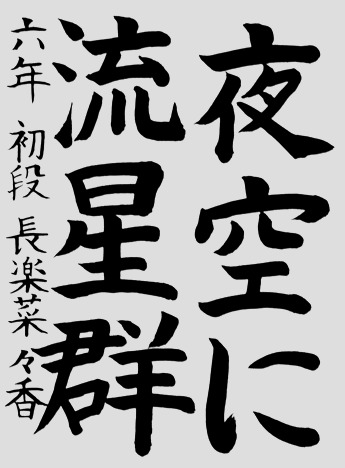 夜空に
流星群
六年 初段 長楽菜々香